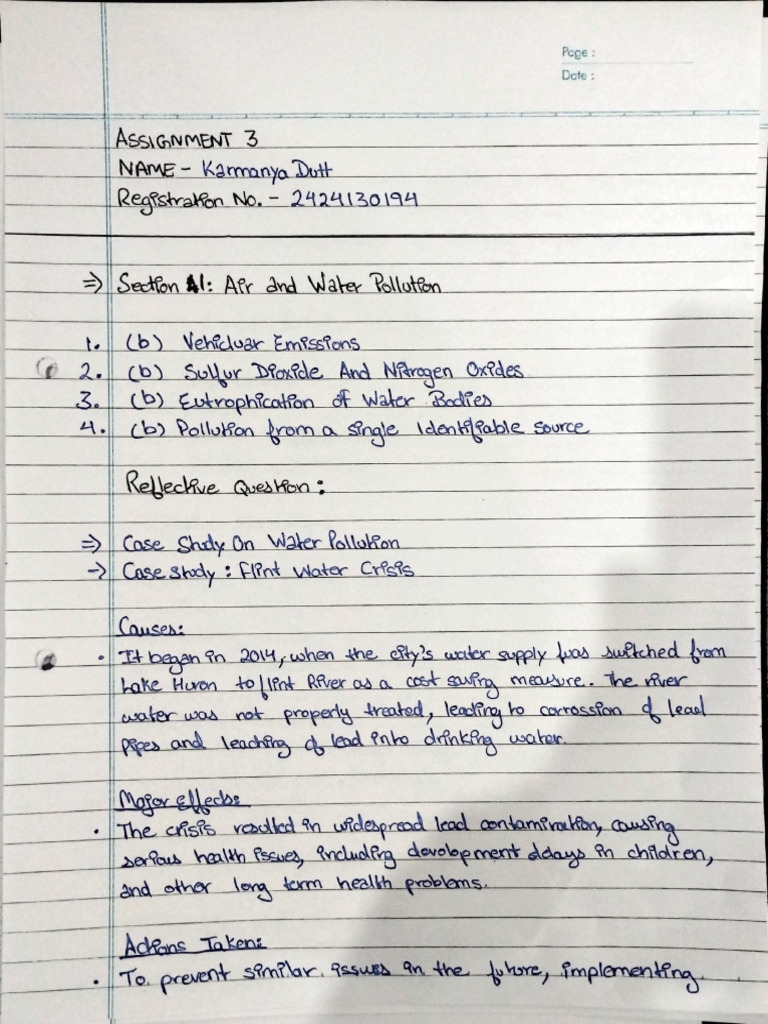 Page :
Date :
ASSIGNMENT 3
NAME - Karmanya Dutt
Registration No. - 2424130194
=> Section 1: Air and Water Pollution
1. (b) Vehicluar Emissions
2. (b) Sulfur Dioxide And Nitrogen Oxides
3. (b) Eutrophication of Water Bodies
4. (b) Pollution from a single Identifiable source
Reflective Question :
=> Case Study On Water Pollution
-> Case study : Flint Water Crisis
Causes:
• It began in 2014, when the city's water supply was switched from
Lake Huron to flint River as a cost saving measure. The river
water was not properly treated, leading to corrossion of lead
pipes and leaching of lead into drinking water.
Major Effects:
• The crisis resulted in widespread lead contamination, causing
serious health issues, including development delays in children,
and other long term health problems.
Actions Taken:
• To prevent similar issues in the future, implementing